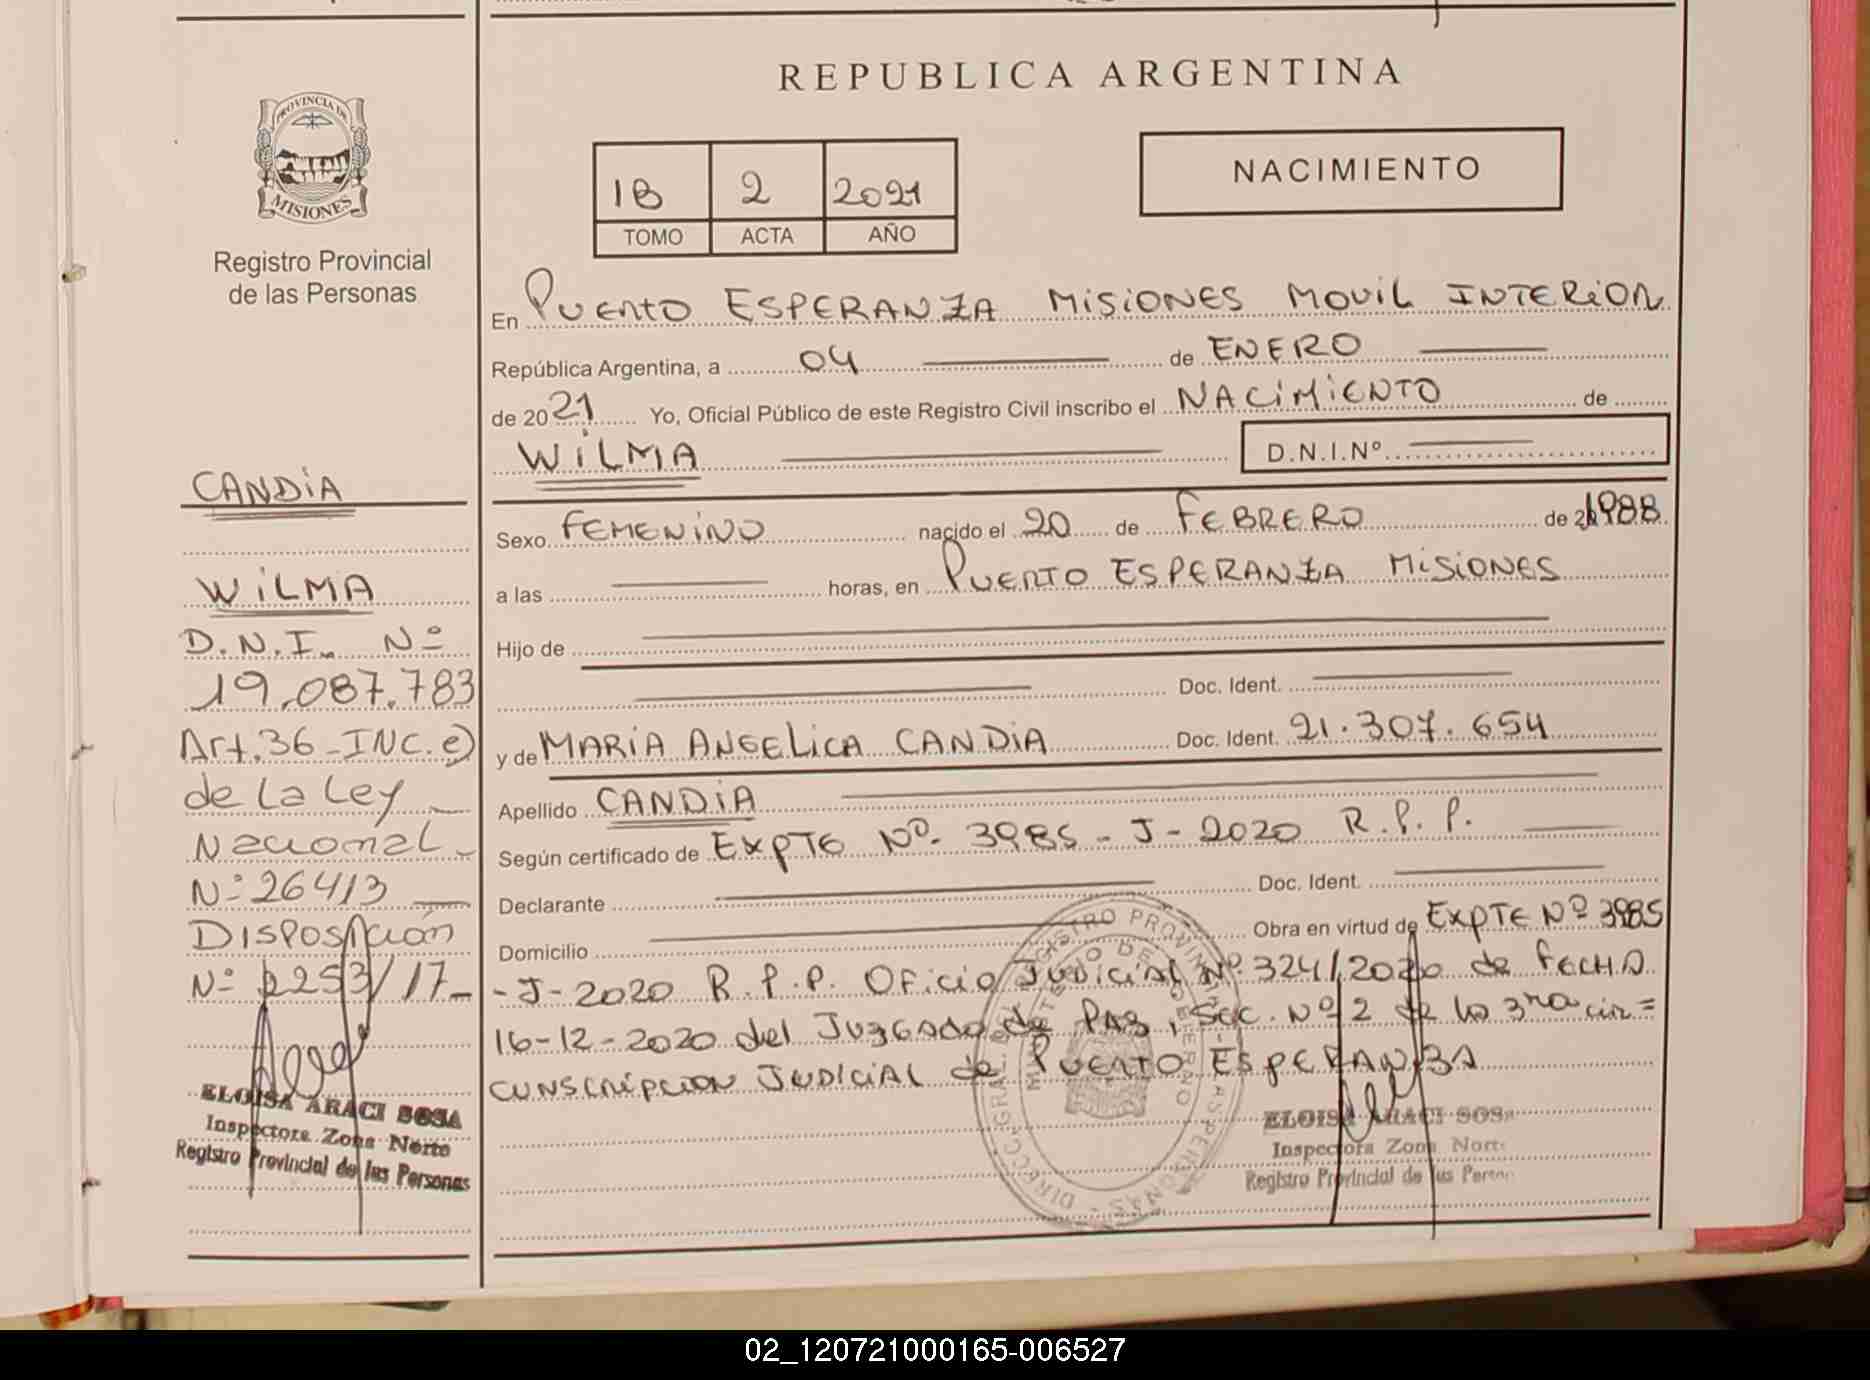 REPUBLICA ARGENTINA
PROVINCIA DE
MISIONES
Registro Provincial
de las Personas
1B 2 2021
TOMO ACTA AÑO
NACIMIENTO
En PUERTO ESPERANZA MISIONES MOVIL INTERIOR
República Argentina, a 04 de ENERO
de 2021 Yo, Oficial Público de este Registro Civil inscribo el NACIMIENTO de
WILMA D.N.I.Nº
Sexo FEMENINO nacido el 20 de FEBRERO de 1988
a las horas, en PUERTO ESPERANZA MISIONES
Hijo de
Doc. Ident.
y de MARIA ANGELICA CANDIA Doc. Ident. 21.307.654
Apellido CANDIA
Según certificado de EXPTE Nº 3985-J-2020 R.P.P.
Declarante Doc. Ident.
Domicilio Obra en virtud de EXPTE Nº 3985
-J-2020 R.P.P. OFICIO JUDICIAL Nº 324/2020 de FECHA
16-12-2020 del JUZGADO de PAZ, SEC. Nº 2 de la 3ra cir=
CUNSCRIPCION JUDICIAL de PUERTO ESPERANZA
CANDIA
WILMA
D.N.I. Nº
19.087.783
Art.36-INC.e)
de La Ley
Nacional
Nº 26413
DISPOSICIÓN
Nº 2253/17
ELOISA ARACI SOSA
Inspectora Zona Norte
Registro Provincial de las Personas
ELOISA ARACI SOSA
Inspectora Zona Norte
Registro Provincial de las Person
02_120721000165-006527